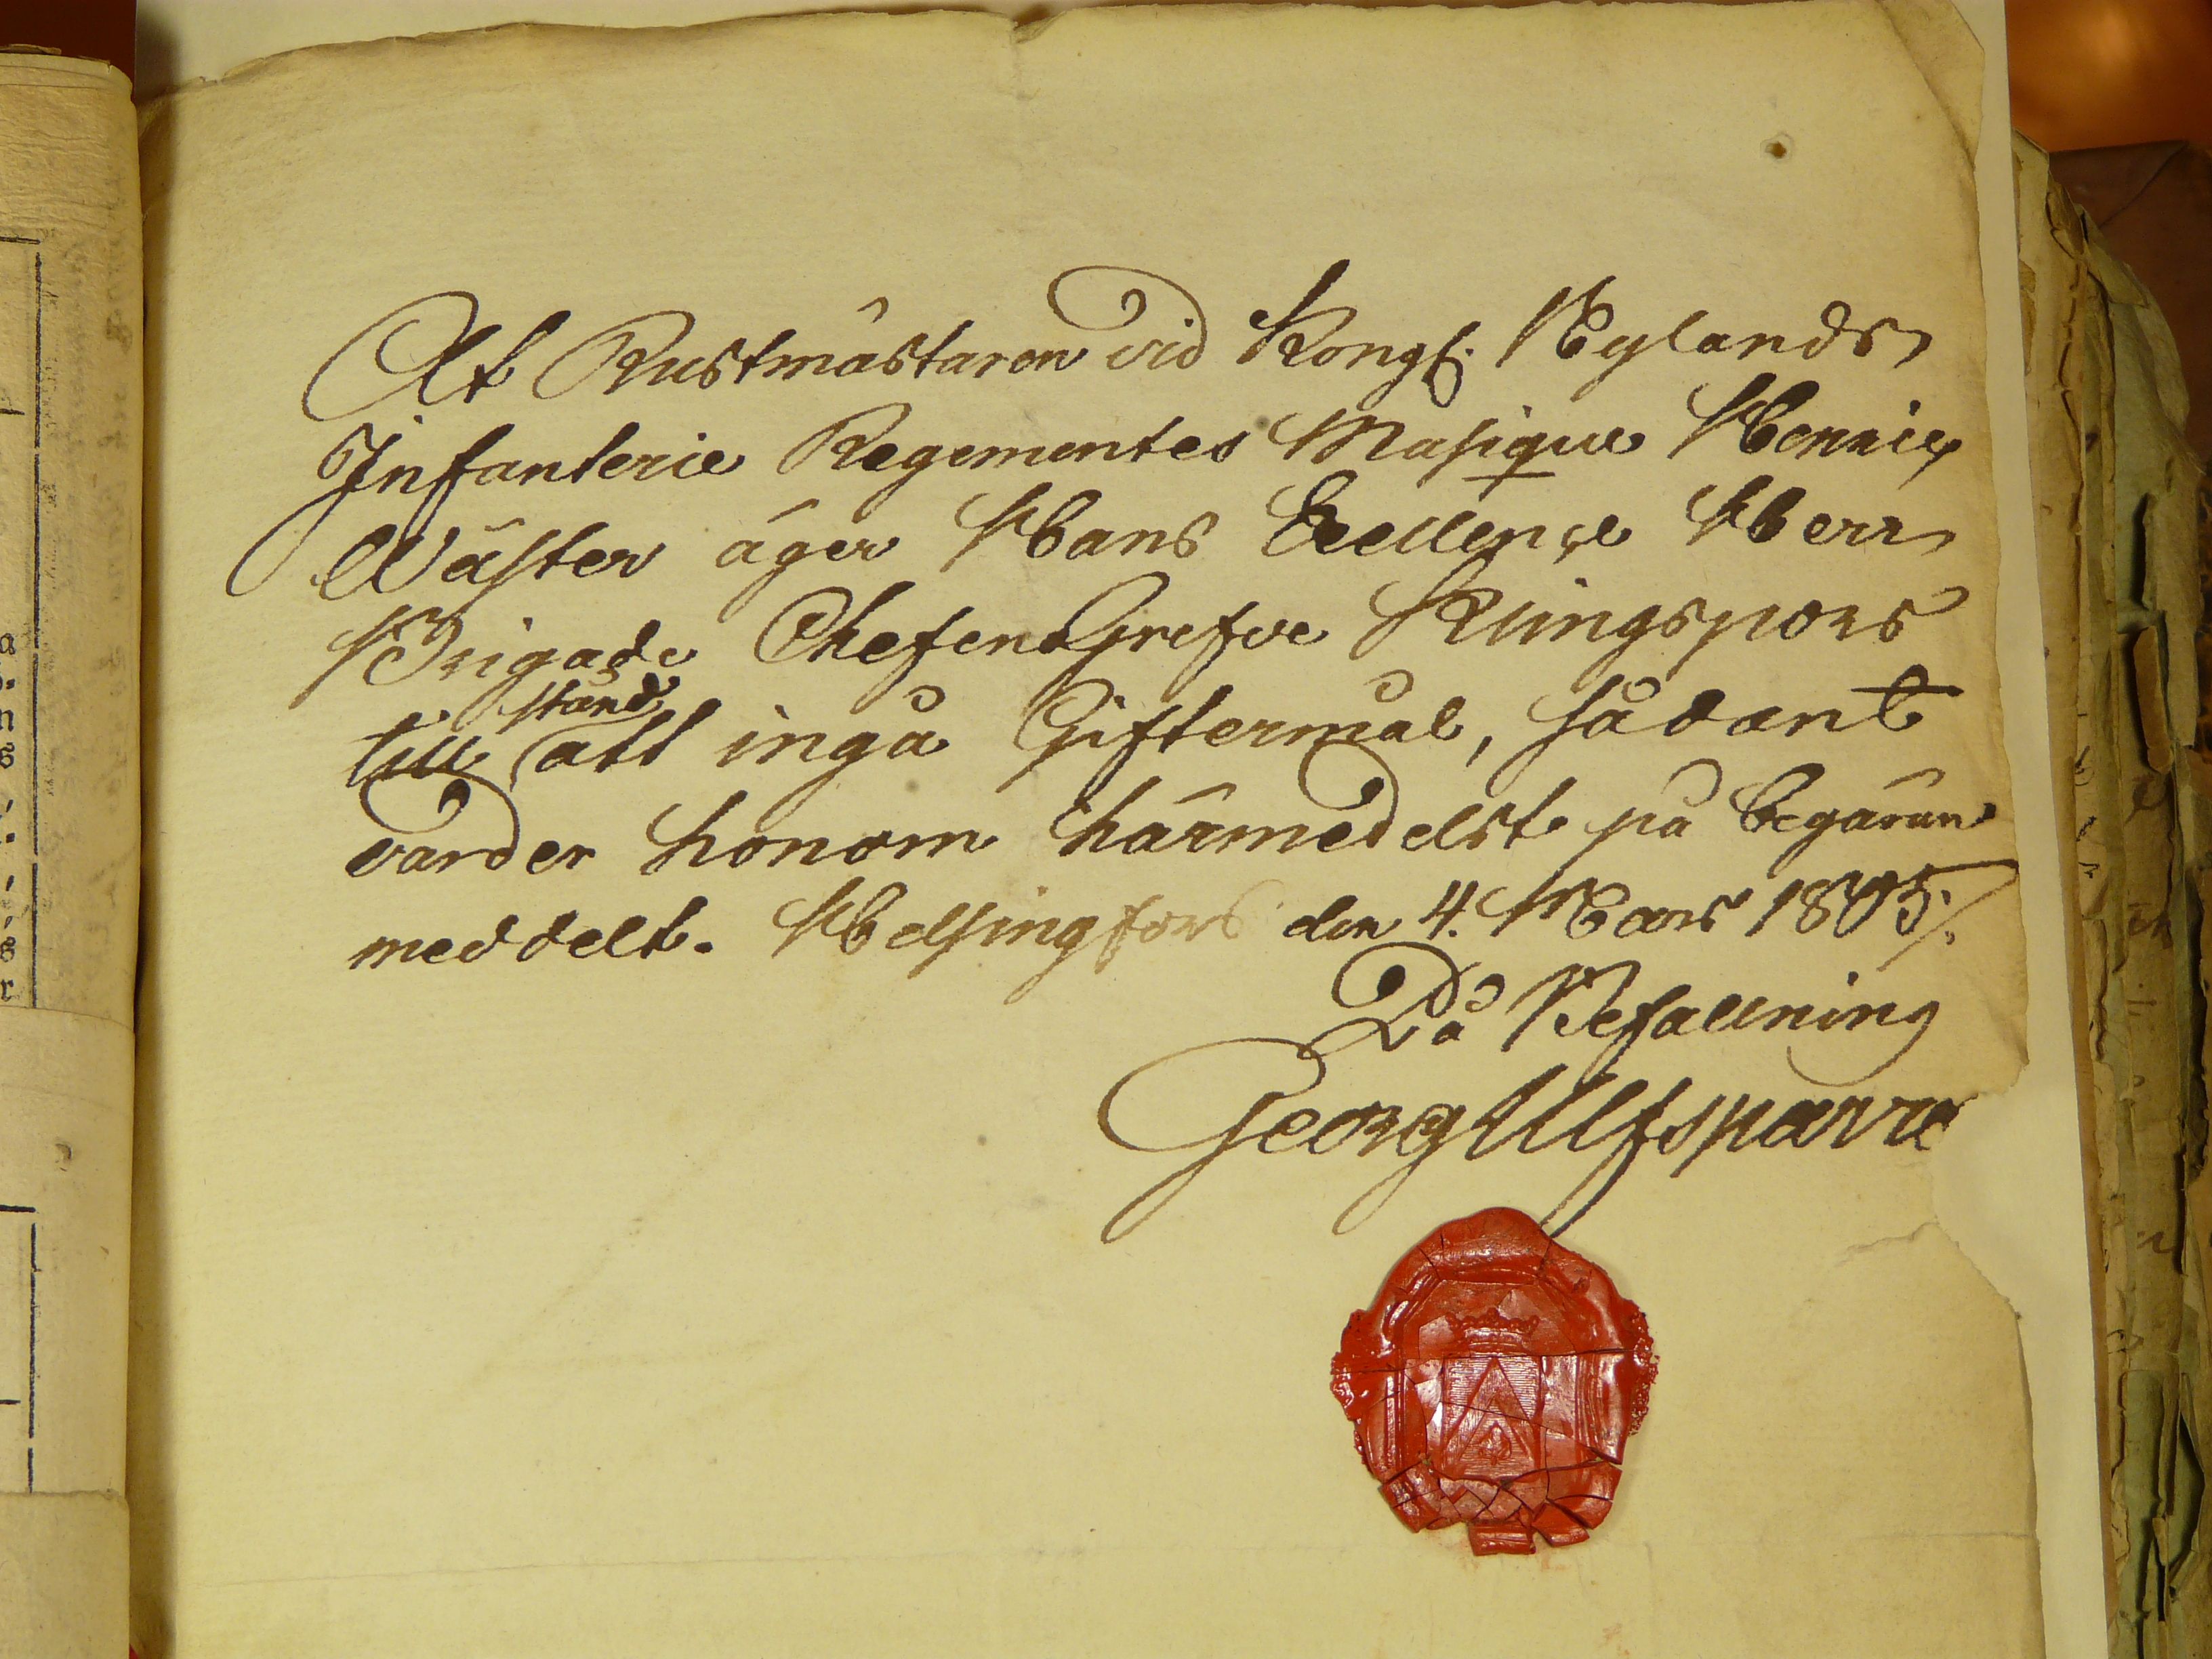 At Rustmästaren vid Kongl. Nylands
Infanterie Regementes Musique Henric
Wäster äger Hans Excellence Herr
Brigade Chefen Grefve Klingspors
till stånd att ingå Giftermål, sådant
varder honom härmedelst på begäran
meddelt. Helsingfors den 4. Mars 1805./.
På Befallning
Georg Ulfsparre